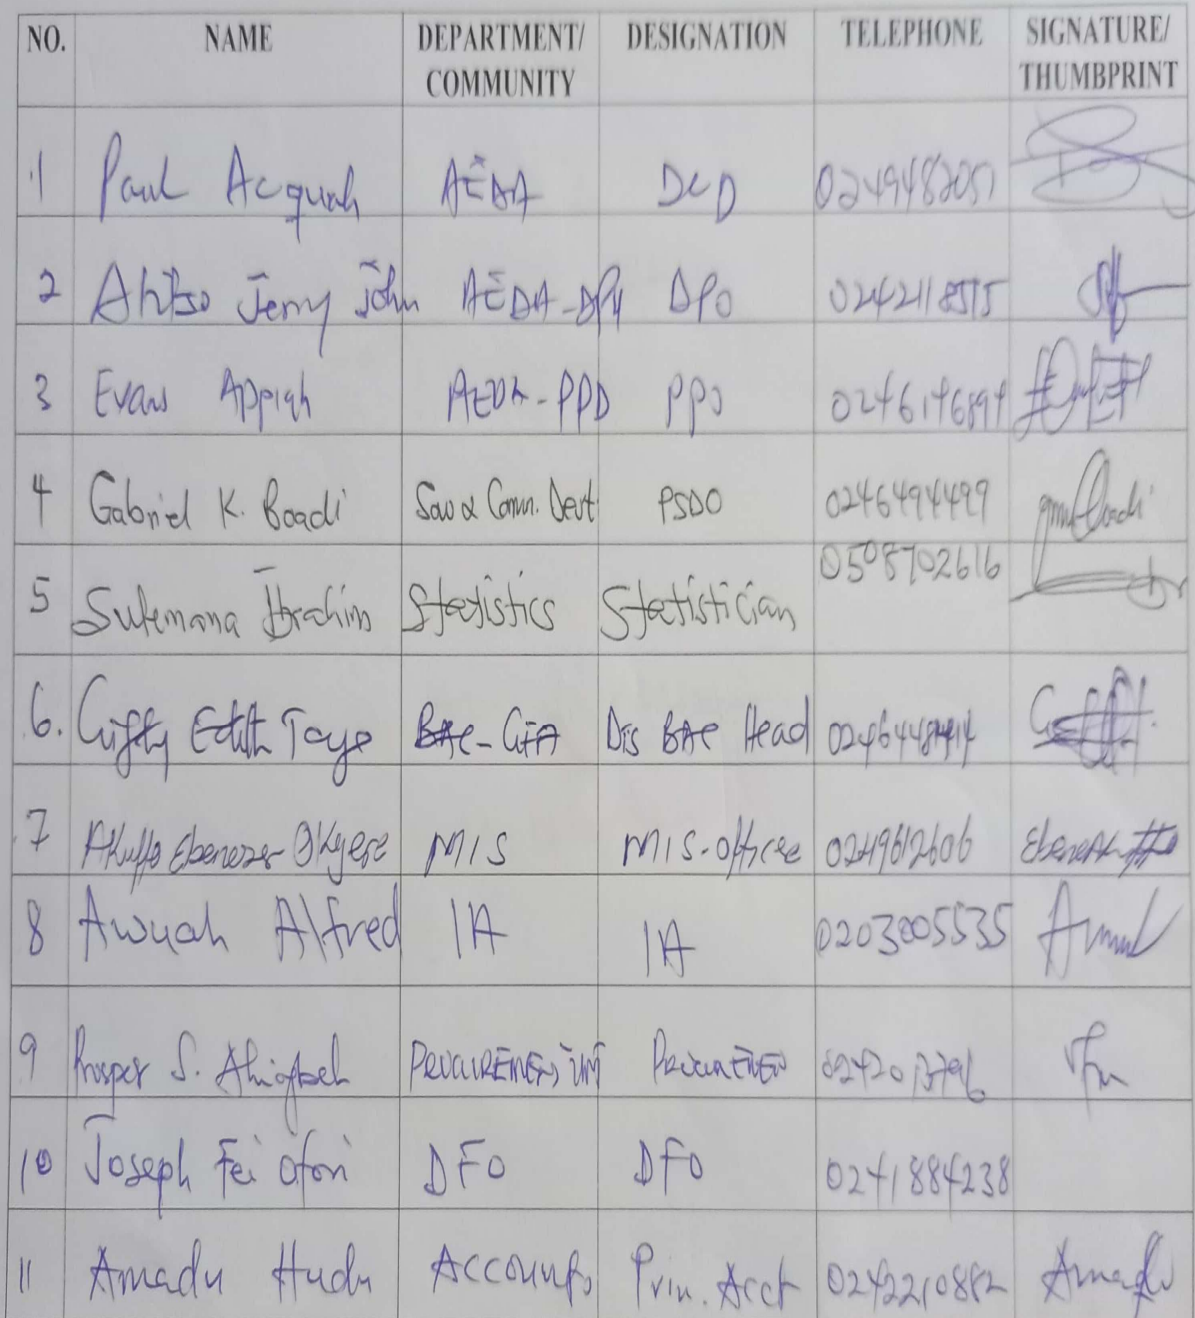 NO. NAME DEPARTMENT/ COMMUNITY DESIGNATION TELEPHONE SIGNATURE/ THUMBPRINT
1 Paul Acquah AEDA DCD 0249482051
2 Jerry John AEDA-DPU DPO 0242118515
3 Evans Appiah AEDA-PPD PPO 0246146894
4 Gabriel K. Boadi Soc & Comm. Devt PSDO 0246494499
5 Sulemana Ibrahim Statistics Statistician 0508702616
6. Gifty Edith Taye BAC-GEA Dis BAC Head
7 Akuffo Ebenezer Okyere MIS MIS-officer 0249612606
8 Awuah Alfred IA IA 0203005535
9 Prosper S. PROCUREMENT UNIT PROCUREMENT
10 Joseph Tei Ofori DFO DFO 0241884238
11 Amadu Hudu Accounts Prin. Acct 0242210882